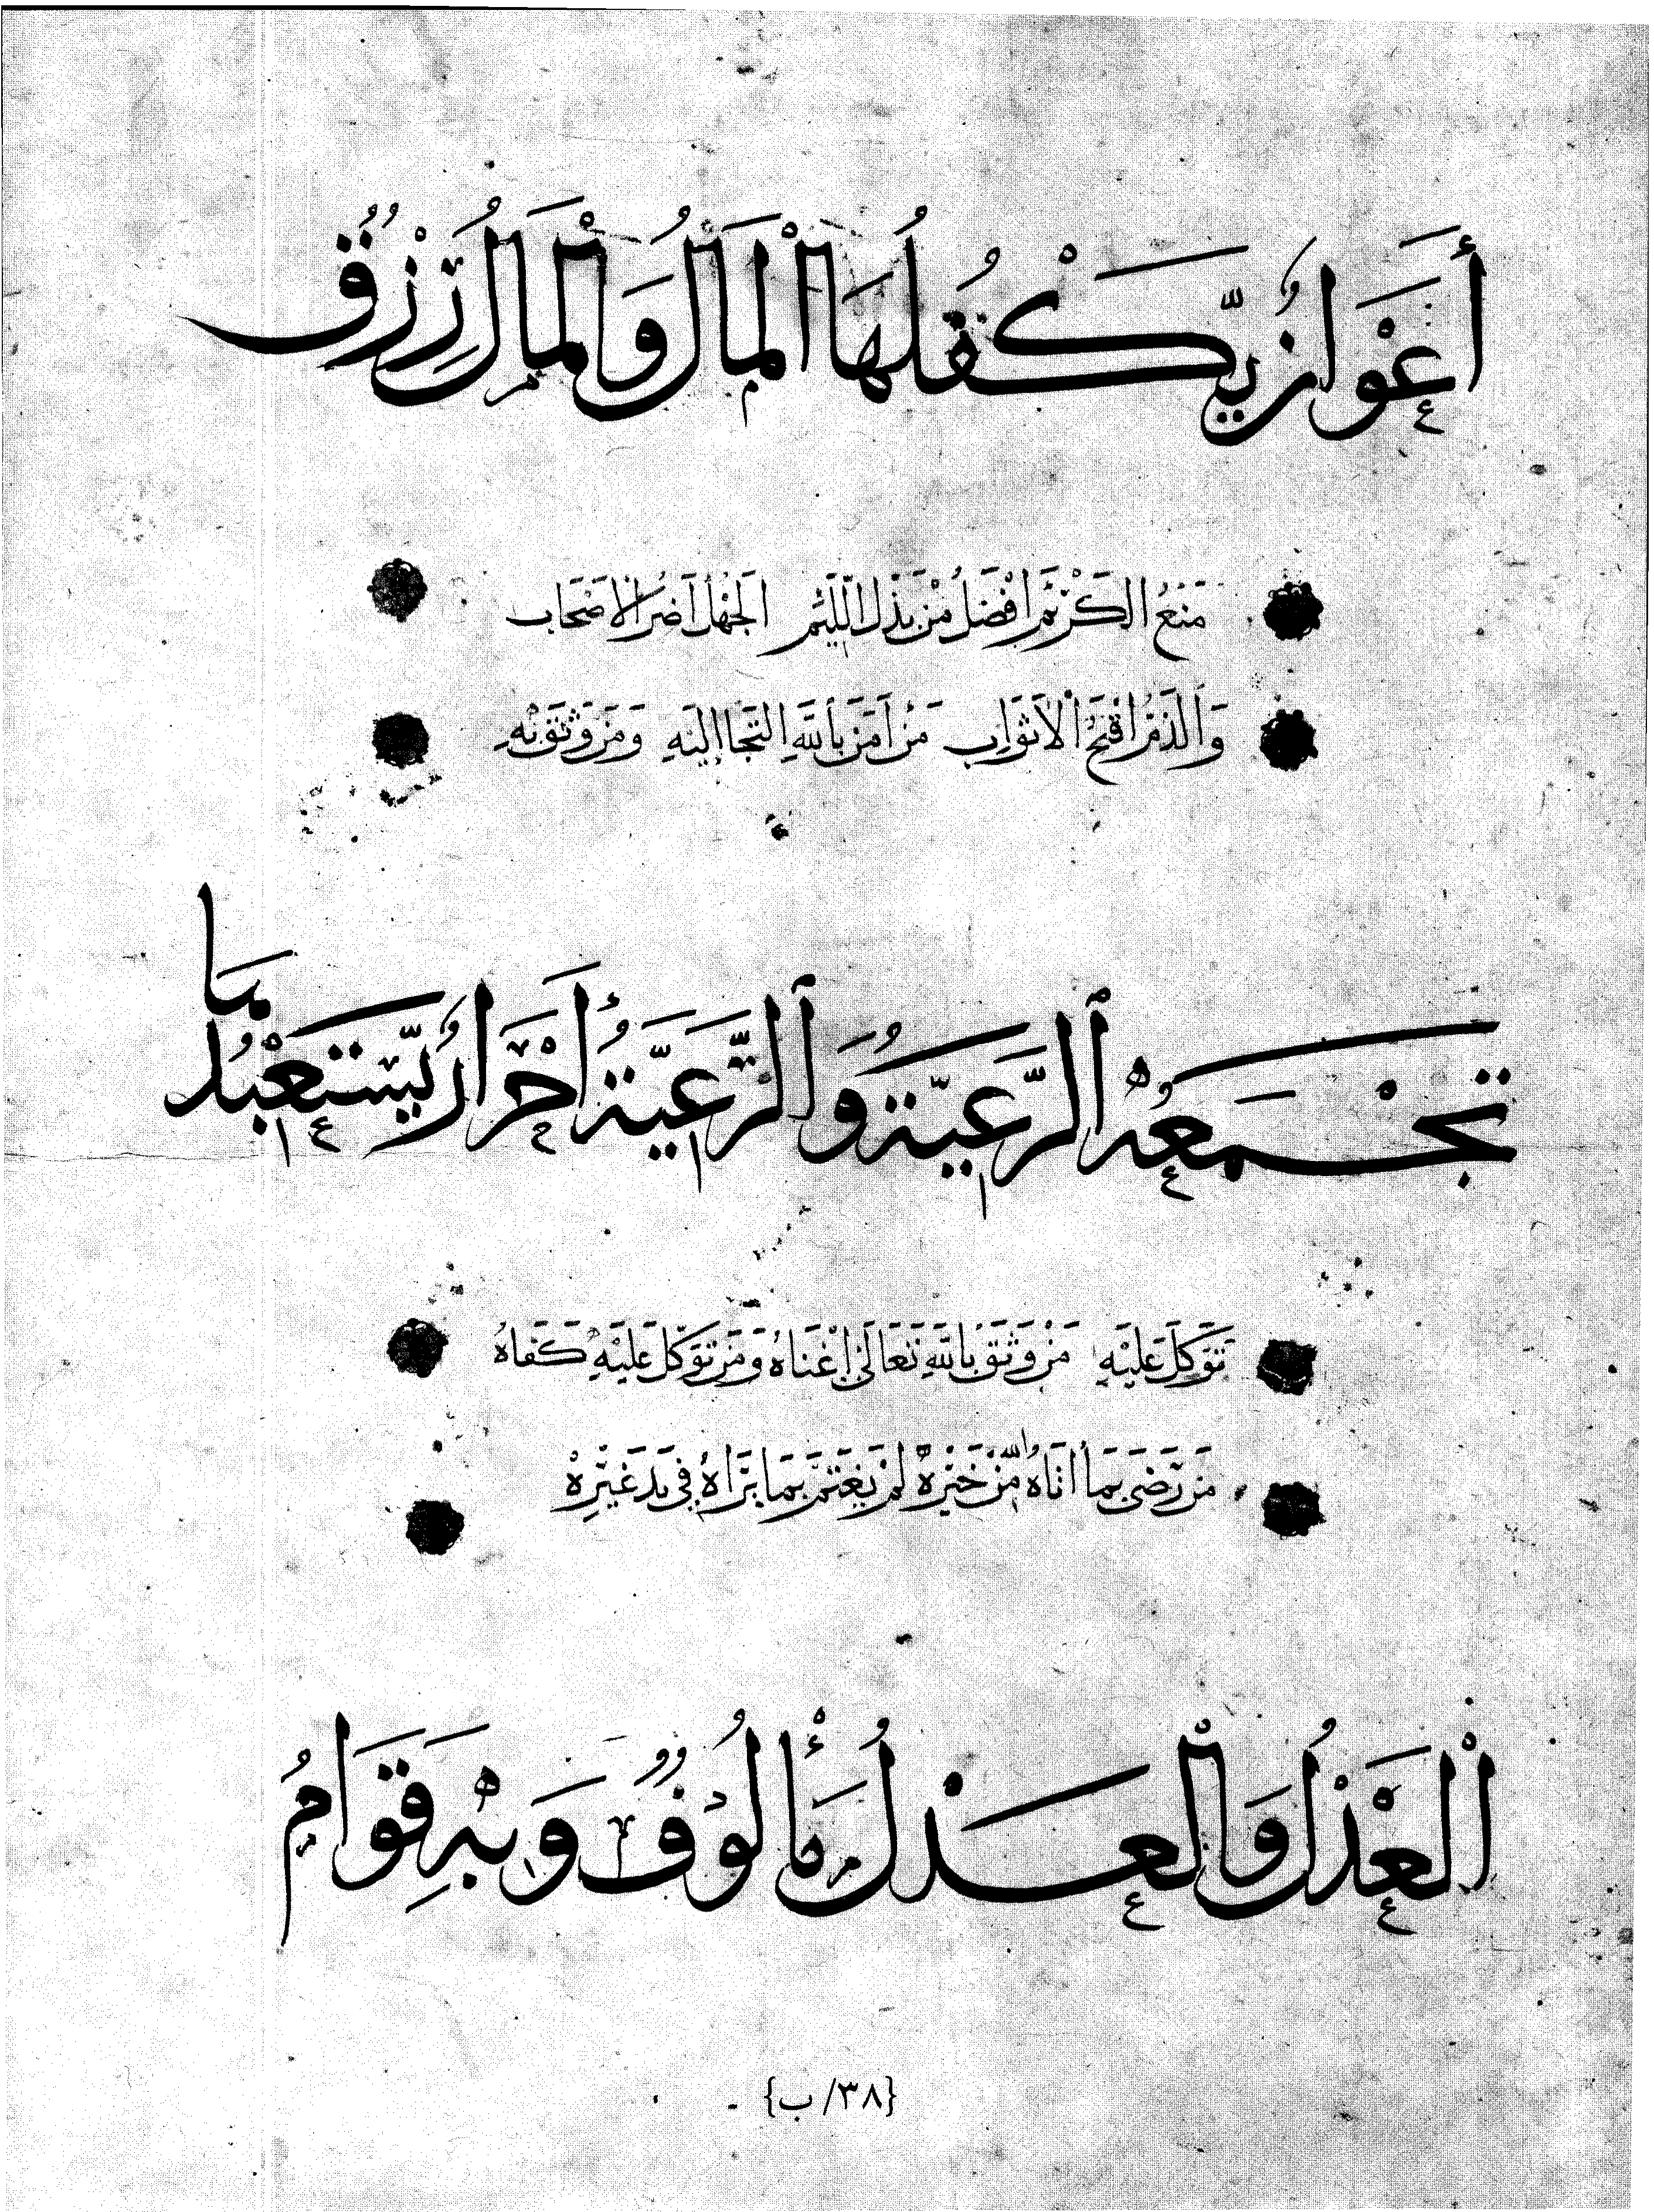 أَعْوَانٌ يَّكْفُلُهَا الْمَالُ وَالْمَالُ رِزْقٌ
مَنْعُ الْكَرِيْمِ اَفْضَلُ مِنْ بَذْلِ اللَّئِيْمِ الْجَهْلُ اَضَرُّ الْاَصْحَابِ
وَالذَّمُّ اَقْبَحُ الْاَثْوَابِ مَنْ اٰمَنَ بِاللّٰهِ الْتَجَا اِلَيْهِ وَمَنْ وَثِقَ بِهٖ
تَجْمَعُهُ الرَّعِيَّةُ وَالرَّعِيَّةُ أَحْرَارٌ يَسْتَعْبِدُهُمَا
تَوَكَّلَ عَلَيْهِ مَنْ وَثِقَ بِاللّٰهِ تَعَالٰى اَغْنَاهُ وَمَنْ تَوَكَّلَ عَلَيْهِ كَفَاهُ
مَنْ رَضِيَ بِمَا اَتَاهُ مِنْ خَيْرِهٖ لَمْ يَغْتَمَّ بِمَا يَرَاهُ فِي يَدِ غَيْرِهٖ
الْعَدْلُ وَالْعَدْلُ مَأْلُوْفٌ وَبِهٖ قِوَامُ
{٣٨/ب}